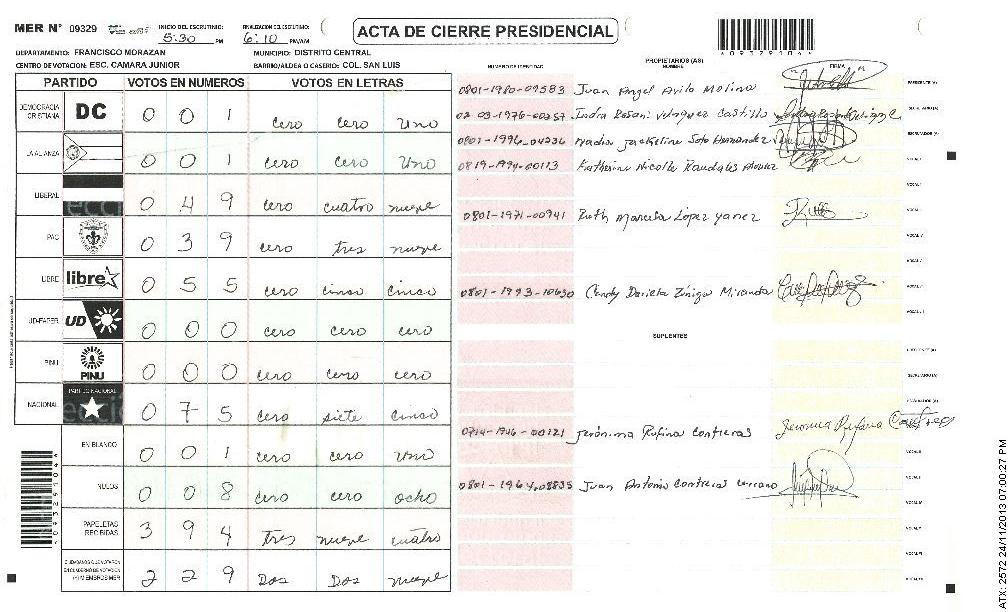 MER N° 09329 INICIO DEL ESCRUTINIO: 5:30 PM FINALIZACION DEL ESCRUTINIO: 6:10 PM/AM
ACTA DE CIERRE PRESIDENCIAL
DEPARTAMENTO: FRANCISCO MORAZAN MUNICIPIO: DISTRITO CENTRAL
CENTRO DE VOTACION: ESC. CAMARA JUNIOR BARRIO/ALDEA O CASERIO: COL. SAN LUIS
PARTIDO VOTOS EN NUMEROS VOTOS EN LETRAS
DEMOCRACIA CRISTIANA DC 0 0 1 cero cero uno
LA ALIANZA 0 0 1 cero cero uno
LIBERAL 0 4 9 cero cuatro nueve
PAC 0 3 9 cero tres nueve
LIBRE libre 0 5 5 cero cinco cinco
UD-FAPER UD 0 0 0 cero cero cero
PINU PINU 0 0 0 cero cero cero
NACIONAL PARTIDO NACIONAL 0 7 5 cero siete cinco
EN BLANCO 0 0 1 cero cero uno
NULOS 0 0 8 cero cero ocho
PAPELETAS RECIBIDAS 3 9 4 tres nueve cuatro
CIUDADANOS QUE VOTARON EN CUADERNO DE VOTACION (+) MIEMBROS MER 2 2 9 Dos Dos nueve
PROPIETARIOS (AS)
NUMERO DE IDENTIDAD NOMBRE FIRMA
0801-1980-09583 Juan Angel Avila Molina PRESIDENTE (A)
Indra Rosani Velasquez Castillo SECRETARIO (A)
0801-1996-04236 Nadia Jackeline Soto Hernandez ESCRUTADOR (A)
0819-1994-00113 Katherine Nicolle Raudales Alvarez VOCAL I
0801-1971-00941 Ruth Marcela López Yanez
0801-1993-10630 Candy Dariela Zúniga Miranda
SUPLENTES
Jerónima Rufina Contreras
Juan Antonio Contreras Serrano
*09325104*
ATX: 2572 24/11/2013 07:00:27 PM